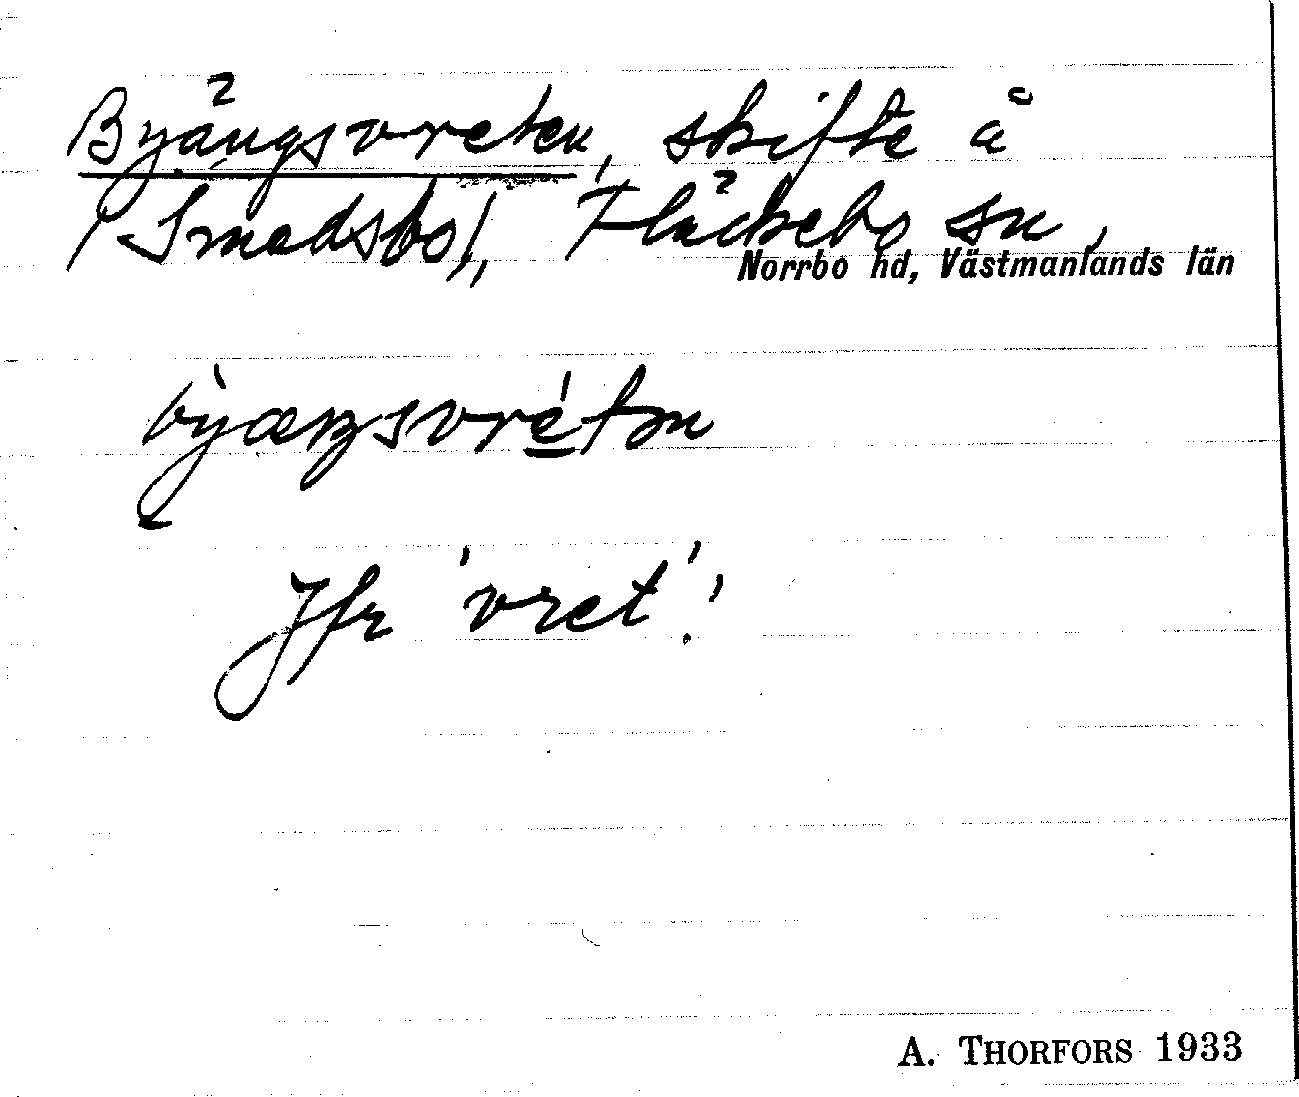 Byängsvreten, skifte å
/Smedsbo/, Fläckebo sn,
Norrbo hd, Västmanlands län
Jfr 'vret'!
A. THORFORS 1933